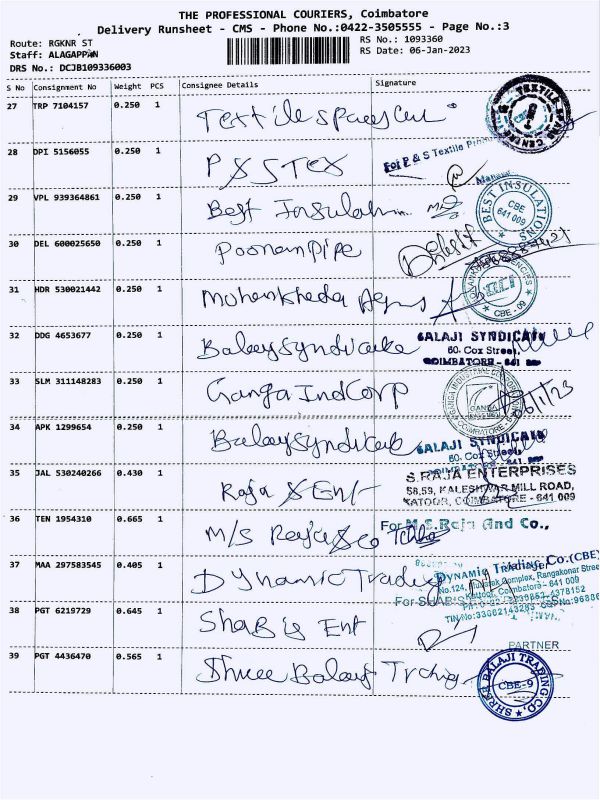 THE PROFESSIONAL COURIERS, Coimbatore
Delivery Runsheet - CMS - Phone No.:0422-3505555 - Page No.:3
Route: RGKNR ST
RS No.: 1093360
Staff: ALAGAPPAN
RS Date: 06-Jan-2023
DRS No.: DCJB109336003
S No Consignment No Weight PCS Consignee Details Signature
27 TRP 7104157 0.250 1 Textile
TEXTILE CENTRE
28 DPI 5156055 0.250 1 P & S Tex
For P & S Textile
Manager
29 VPL 939364861 0.250 1 Best
BEST INSULATIONS
CBE
641 009
30 DEL 600025650 0.250 1 Poonam Pipe
31 HDR 530021442 0.250 1
CBE - 09
32 DDG 4653677 0.250 1 Balaji Syndicate
BALAJI SYNDICATE
60, Cox Street,
COIMBATORE - 641
33 SLM 311148283 0.250 1 Ganga Ind Corp
GANGA
COIMBATORE
34 APK 1299654 0.250 1 Balaji Syndicate
BALAJI SYNDICATE
60, Cox Street,
35 JAL 530240266 0.430 1 Raja & Ent
S.RAJA ENTERPRISES
58,59, KALESHWAR MILL ROAD,
KATOOR, COIMBATORE - 641 009
36 TEN 1954310 0.665 1 M/S Raja & Co
For M.S.Raja And Co.,
37 MAA 297583545 0.405 1 Dynamic Trading
Dynamic Trading Co.(CBE)
38 PGT 6219729 0.645 1 Ent
PARTNER
39 PGT 4436470 0.565 1 Shree Balaji
SHREE BALAJI TRADING CO.
CBE-9